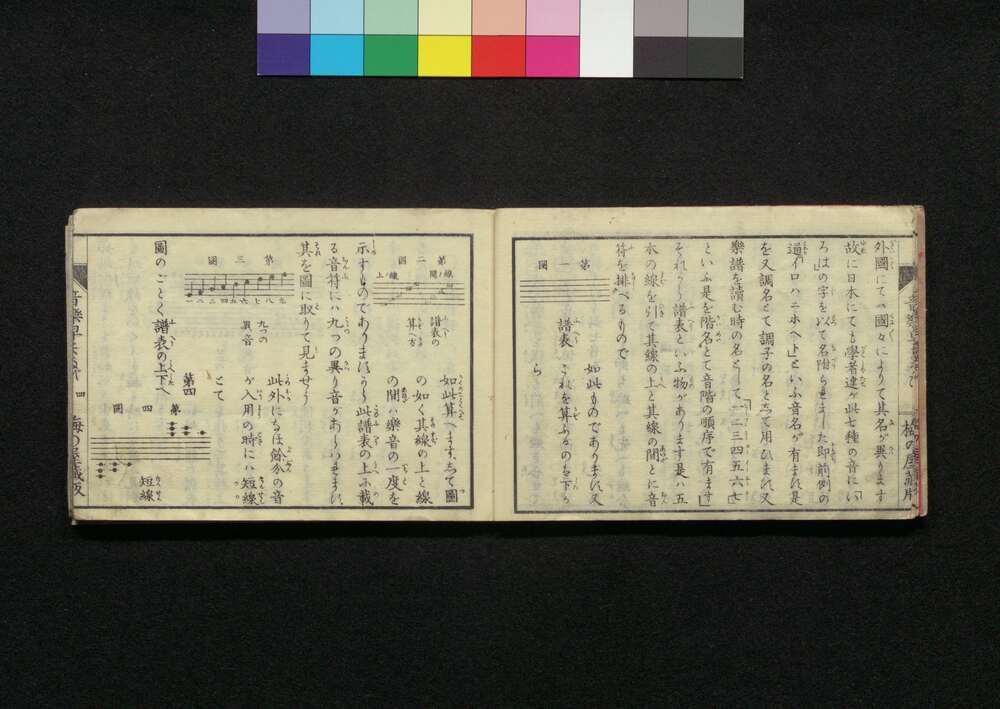 外國にてハ國々によりて其名が異ります
故に日本にても學者達が此七種の音に「い
ろは」の字を以て名附られました即前例の
通「イロハニホヘト」といふ音名が有ます是
を又調名とて調子の名として用ひます又
樂譜を讀む時の名として「一二三四五六七」
といふ是を階名とて音階の順序で有ます
それから譜表といふ物があります是ハ五
本の線を引て其線の上と其線の間とに音
符を排べるもので
第一圖
如此ものであります又
譜表 これを算ふるのを下か
ら
第二圖
線ノ間
線ノ上
譜表の
算へ方
如此算へます、して圖
の如く其線の上と線
の間ハ樂音の一度を
示すものであります此譜表の上に載
る音符にハ九つの異り音があります
其を圖に取りて見ませう
第三圖
一二三四五六七八九
九つの
異音
此外になほ餘分の音
が入用の時にハ短線
とて
第四
圖のごとく譜表の上下へ
第四圖
短線
四
梅の屋藏版